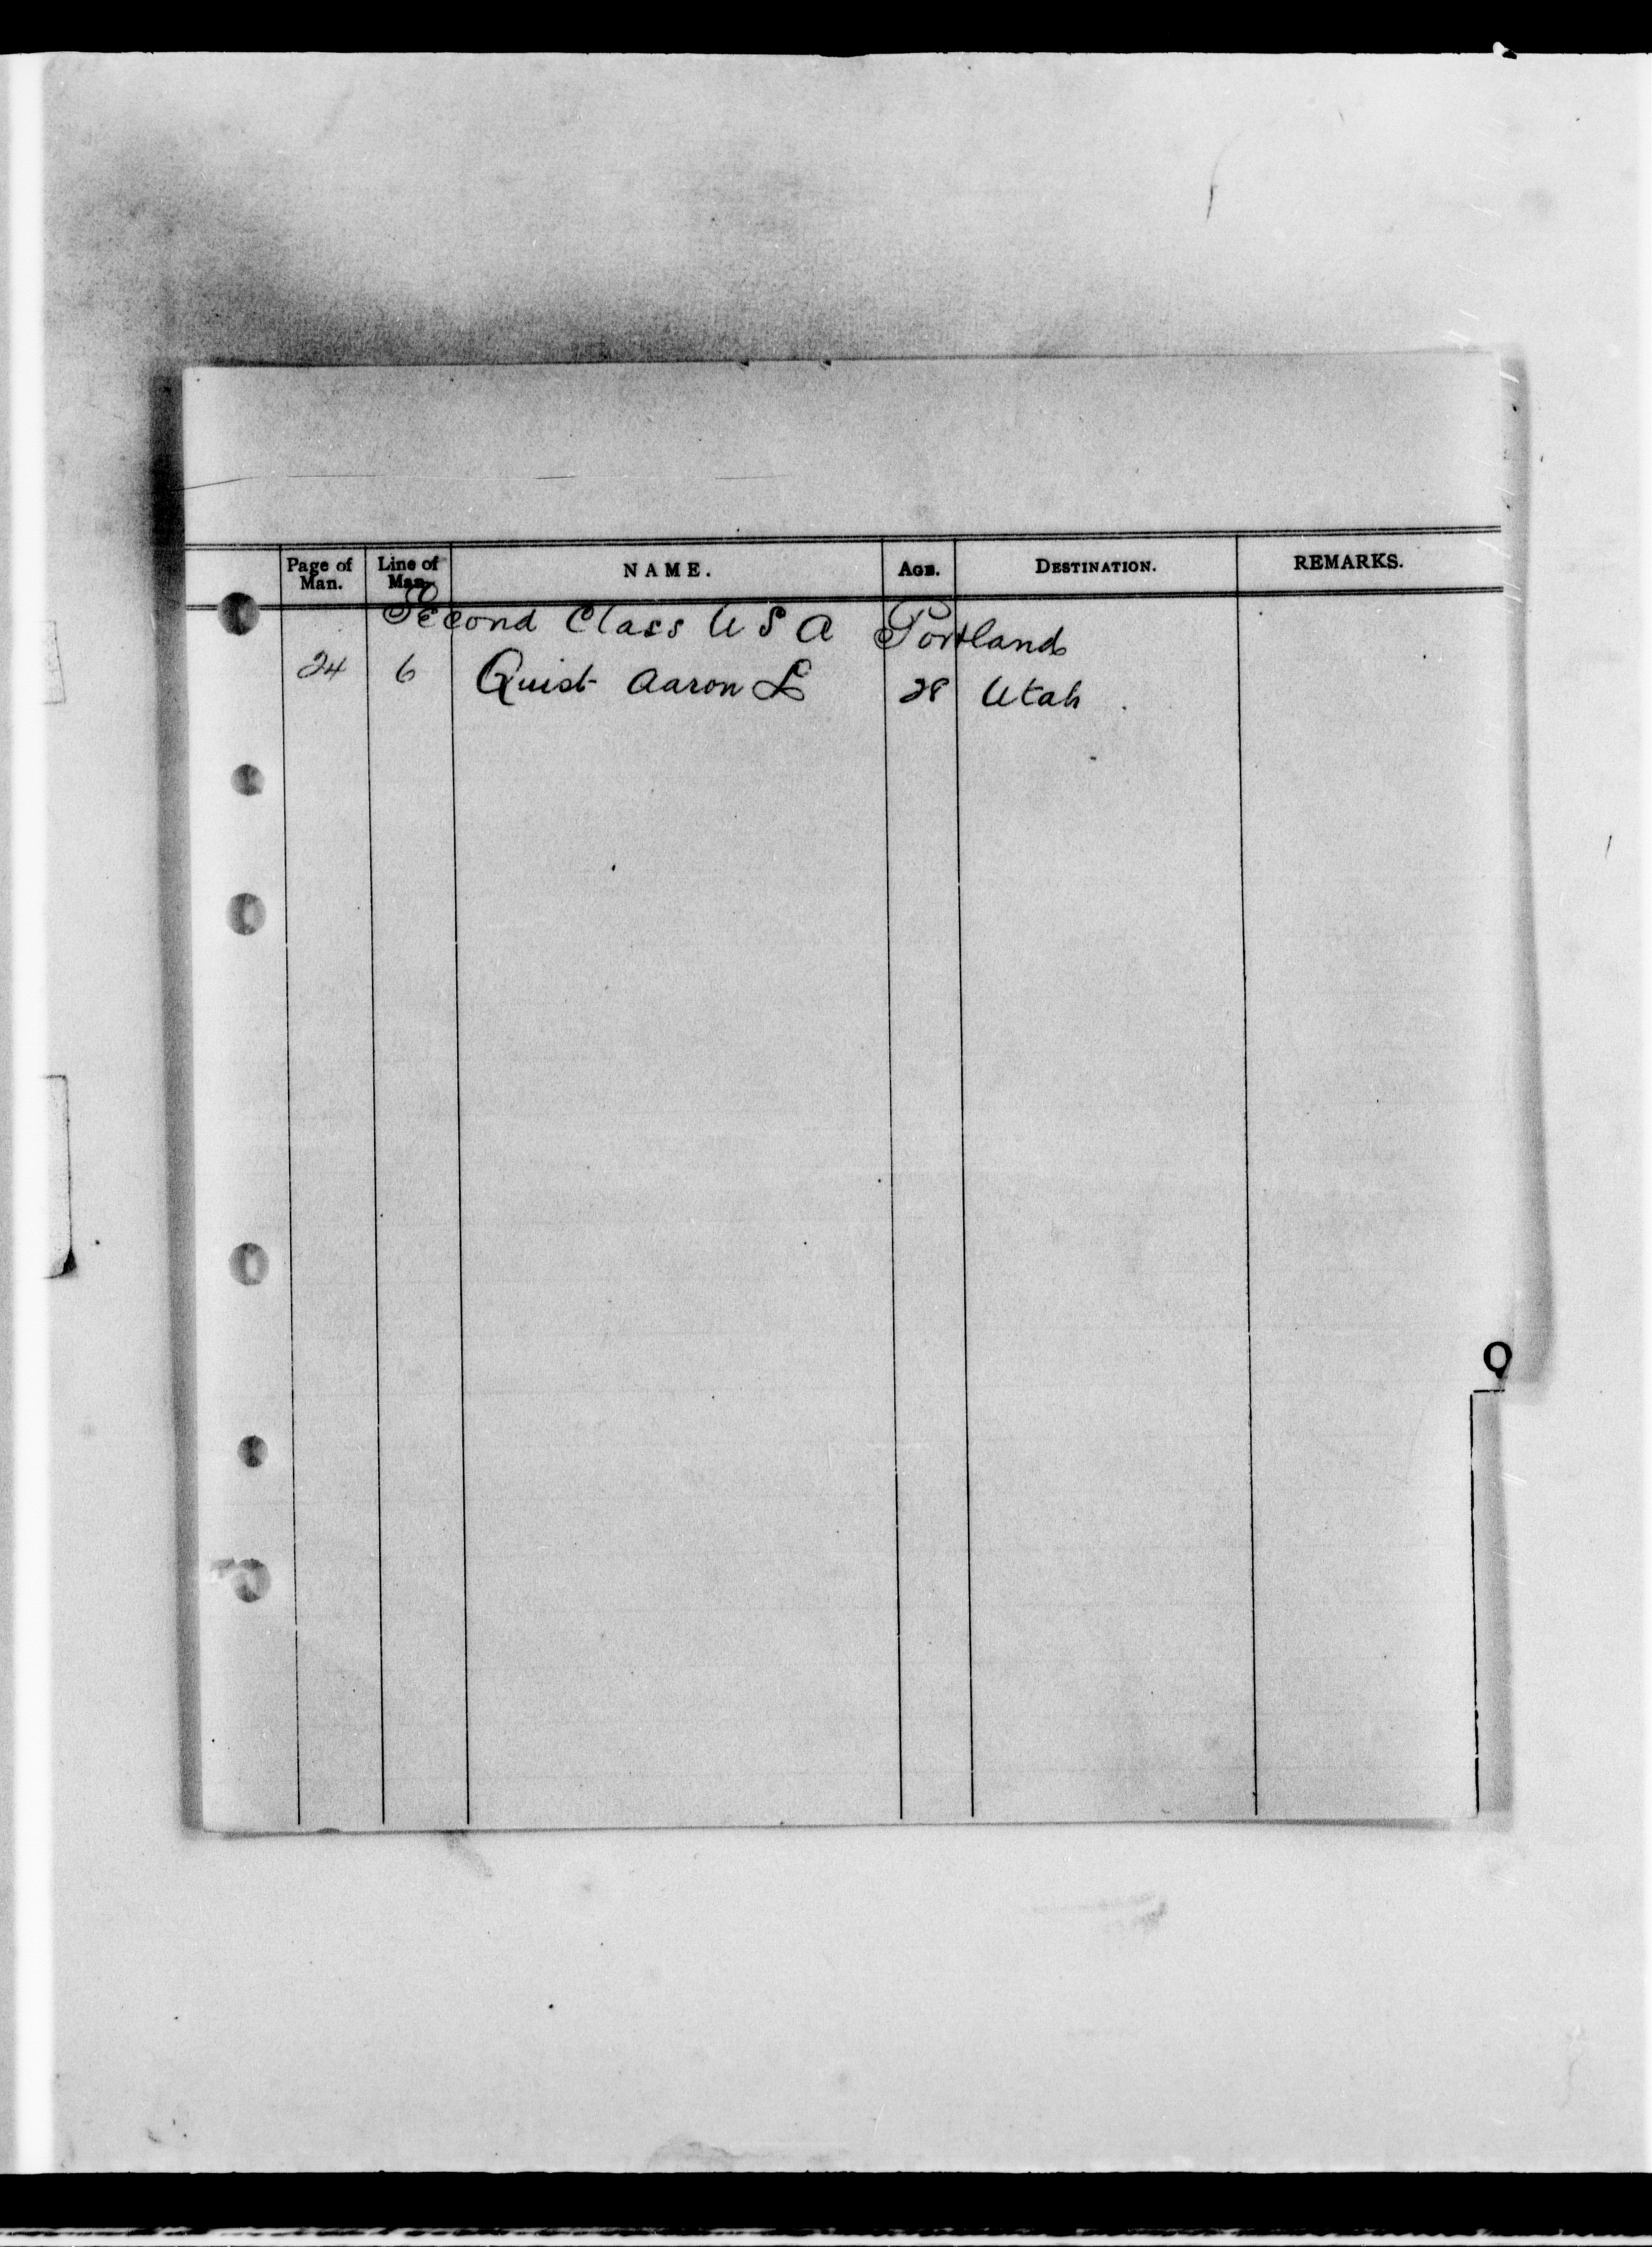 Page of Man. Line of Man. NAME. AGE. DESTINATION. REMARKS.
Second Class U S A Portland
24 6 Quist Aaron L 28 Utah
Q